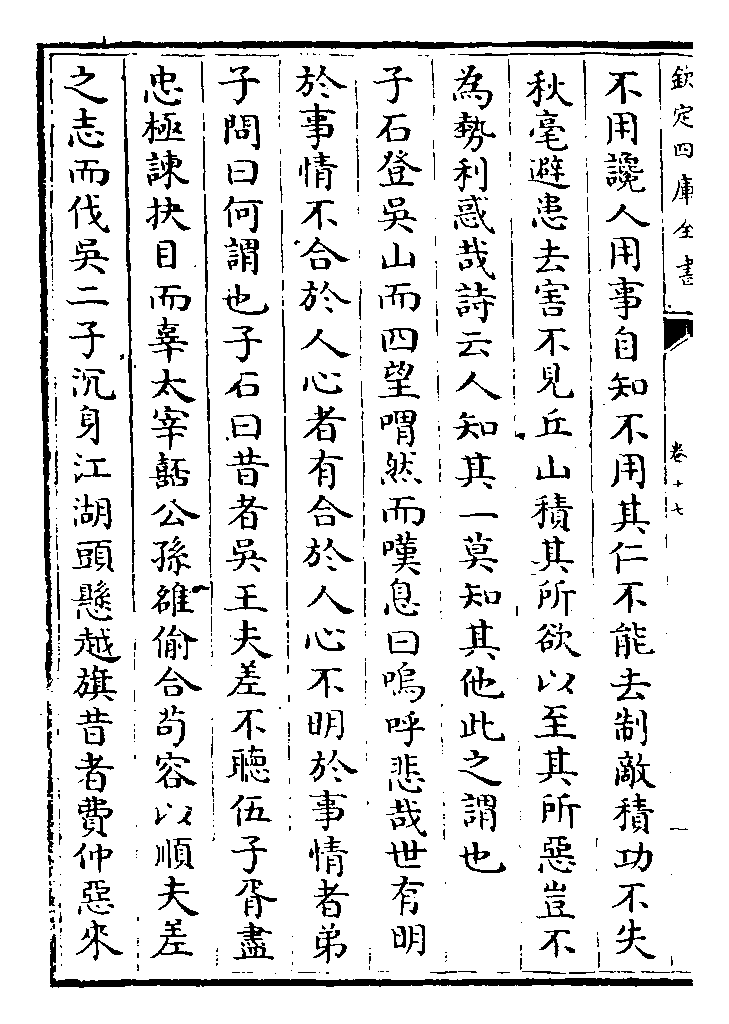 欽定四庫全書
卷十七
不用讒人用事自知不用其仁不能去制敵積功不失
秋毫避患去害不見丘山積其所欲以至其所惡豈不
為勢利惑哉詩云人知其一莫知其他此之謂也
子石登吳山而四望喟然而嘆息曰嗚呼悲哉世有明
於事情不合於人心者有合於人心不明於事情者弟
子問曰何謂也子石曰昔者吳王夫差不聽伍子胥盡
忠極諫抉目而辜太宰嚭公孫雒偷合苟容以順夫差
之志而伐吳二子沉身江湖頭懸越旗昔者費仲惡來